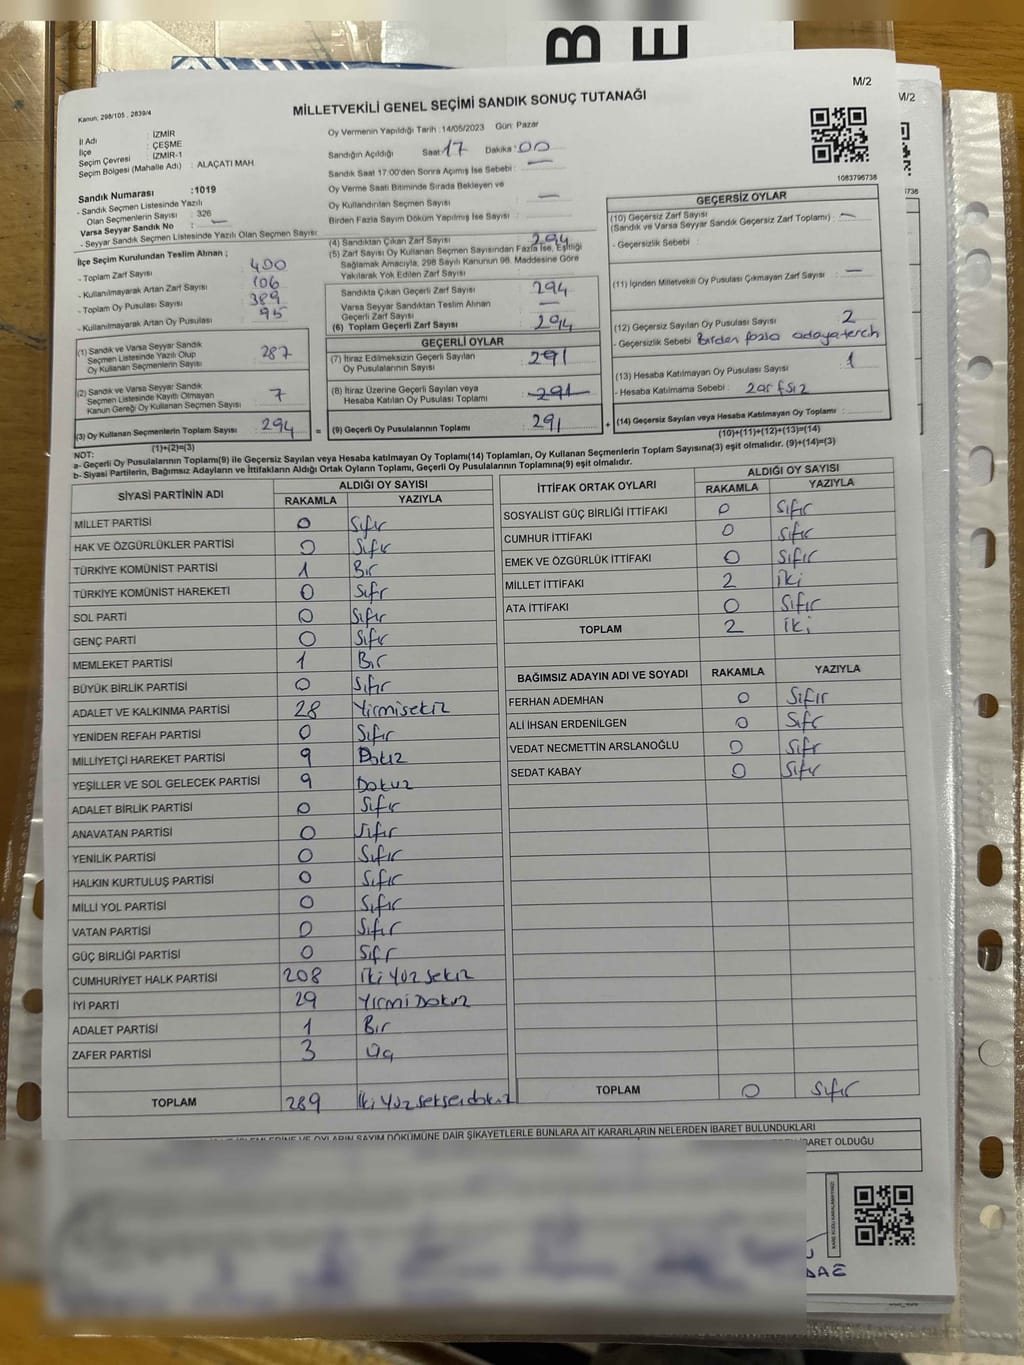 B
E
M/2
M/2
Kanun, 298/105 , 2839/4
MİLLETVEKİLİ GENEL SEÇİMİ SANDIK SONUÇ TUTANAĞI
İl Adı : İZMİR
İlçe : ÇEŞME
Seçim Çevresi : İZMİR-1
Seçim Bölgesi (Mahalle Adı) : ALAÇATI MAH.
Oy Vermenin Yapıldığı Tarih : 14/05/2023 Gün: Pazar
Sandığın Açıldığı Saat 17 Dakika : 00
Sandık Saat 17:00'den Sonra Açımış İse Sebebi : —
Oy Verme Saati Bitiminde Sırada Bekleyen ve
Oy Kullandırılan Seçmen Sayısı : —
Birden Fazla Sayım Döküm Yapılmış İse Sayısı :
1083796736
Sandık Numarası : 1019
- Sandık Seçmen Listesinde Yazılı
Olan Seçmenlerin Sayısı : 326
Varsa Seyyar Sandık No : —
- Seyyar Sandık Seçmen Listesinde Yazılı Olan Seçmen Sayısı:
İlçe Seçim Kurulundan Teslim Alınan ;
- Toplam Zarf Sayısı 400
- Kullanılmayarak Artan Zarf Sayısı 106
- Toplam Oy Pusulası Sayısı 389
- Kullanılmayarak Artan Oy Pusulası 95
(1) Sandık ve Varsa Seyyar Sandık
Seçmen Listesinde Yazılı Olup
Oy Kullanan Seçmenlerin Sayısı 287
(2) Sandık ve Varsa Seyyar Sandık
Seçmen Listesinde Kayıtlı Olmayan
Kanun Gereği Oy Kullanan Seçmen Sayısı 7
(3) Oy Kullanan Seçmenlerin Toplam Sayısı 294
(1)+(2)=(3)
(4) Sandıktan Çıkan Zarf Sayısı 294
(5) Zarf Sayısı Oy Kullanan Seçmen Sayısından Fazla İse, Eşitliği
Sağlamak Amacıyla, 298 Sayılı Kanunun 98. Maddesine Göre
Yakılarak Yok Edilen Zarf Sayısı
Sandıkta Çıkan Geçerli Zarf Sayısı 294
Varsa Seyyar Sandıktan Teslim Alınan
Geçerli Zarf Sayısı —
(6) Toplam Geçerli Zarf Sayısı 294
GEÇERLİ OYLAR
(7) İtiraz Edilmeksizin Geçerli Sayılan
Oy Pusulalarının Sayısı 291
(8) İtiraz Üzerine Geçerli Sayılan veya
Hesaba Katılan Oy Pusulası Toplamı 291
(9) Geçerli Oy Pusulalarının Toplamı 291
GEÇERSİZ OYLAR
(10) Geçersiz Zarf Sayısı
(Sandık ve Varsa Seyyar Sandık Geçersiz Zarf Toplamı) : —
- Geçersizlik Sebebi :
(11) İçinden Milletvekili Oy Pusulası Çıkmayan Zarf Sayısı —
(12) Geçersiz Sayılan Oy Pusulası Sayısı 2
- Geçersizlik Sebebi Birden fazla adaya tercih
(13) Hesaba Katılmayan Oy Pusulası Sayısı 1
- Hesaba Katılmama Sebebi : zarfsız
(14) Geçersiz Sayılan veya Hesaba Katılmayan Oy Toplamı :
(10)+(11)+(12)+(13)=(14)
NOT:
a- Geçerli Oy Pusulalarının Toplamı(9) ile Geçersiz Sayılan veya Hesaba katılmayan Oy Toplamı(14) Toplamları, Oy Kullanan Seçmenlerin Toplam Sayısına(3) eşit olmalıdır. (9)+(14)=(3)
b- Siyasi Partilerin, Bağımsız Adayların ve İttifakların Aldığı Ortak Oyların Toplamı, Geçerli Oy Pusulalarının Toplamına(9) eşit olmalıdır.
SİYASİ PARTİNİN ADI ALDIĞI OY SAYISI
RAKAMLA YAZIYLA
MİLLET PARTİSİ 0 Sıfır
HAK VE ÖZGÜRLÜKLER PARTİSİ 0 Sıfır
TÜRKİYE KOMÜNİST PARTİSİ 1 Bir
TÜRKİYE KOMÜNİST HAREKETİ 0 Sıfır
SOL PARTİ 0 Sıfır
GENÇ PARTİ 0 Sıfır
MEMLEKET PARTİSİ 1 Bir
BÜYÜK BİRLİK PARTİSİ 0 Sıfır
ADALET VE KALKINMA PARTİSİ 28 Yirmisekiz
YENİDEN REFAH PARTİSİ 0 Sıfır
MİLLİYETÇİ HAREKET PARTİSİ 9 Dokuz
YEŞİLLER VE SOL GELECEK PARTİSİ 9 Dokuz
ADALET BİRLİK PARTİSİ 0 Sıfır
ANAVATAN PARTİSİ 0 Sıfır
YENİLİK PARTİSİ 0 Sıfır
HALKIN KURTULUŞ PARTİSİ 0 Sıfır
MİLLİ YOL PARTİSİ 0 Sıfır
VATAN PARTİSİ 0 Sıfır
GÜÇ BİRLİĞİ PARTİSİ 0 Sıfır
CUMHURİYET HALK PARTİSİ 208 İki yüz sekiz
İYİ PARTİ 29 Yirmi Dokuz
ADALET PARTİSİ 1 Bir
ZAFER PARTİSİ 3 Üç
TOPLAM 289 İki yüz seksen dokuz
İTTİFAK ORTAK OYLARI ALDIĞI OY SAYISI
RAKAMLA YAZIYLA
SOSYALIST GÜÇ BİRLİĞİ İTTİFAKI 0 Sıfır
CUMHUR İTTİFAKI 0 Sıfır
EMEK VE ÖZGÜRLÜK İTTİFAKI 0 Sıfır
MİLLET İTTİFAKI 2 İki
ATA İTTİFAKI 0 Sıfır
TOPLAM 2 İki
BAĞIMSIZ ADAYIN ADI VE SOYADI RAKAMLA YAZIYLA
FERHAN ADEMHAN 0 Sıfır
ALİ İHSAN ERDENİLGEN 0 Sıfır
VEDAT NECMETTİN ARSLANOĞLU 0 Sıfır
SEDAT KABAY 0 Sıfır
TOPLAM 0 Sıfır
İŞLEMLERİNE VE OYLARIN SAYIM DÖKÜMÜNE DAİR ŞİKAYETLERLE BUNLARA AİT KARARLARIN NELERDEN İBARET BULUNDUKLARI
İBARET OLDUĞU